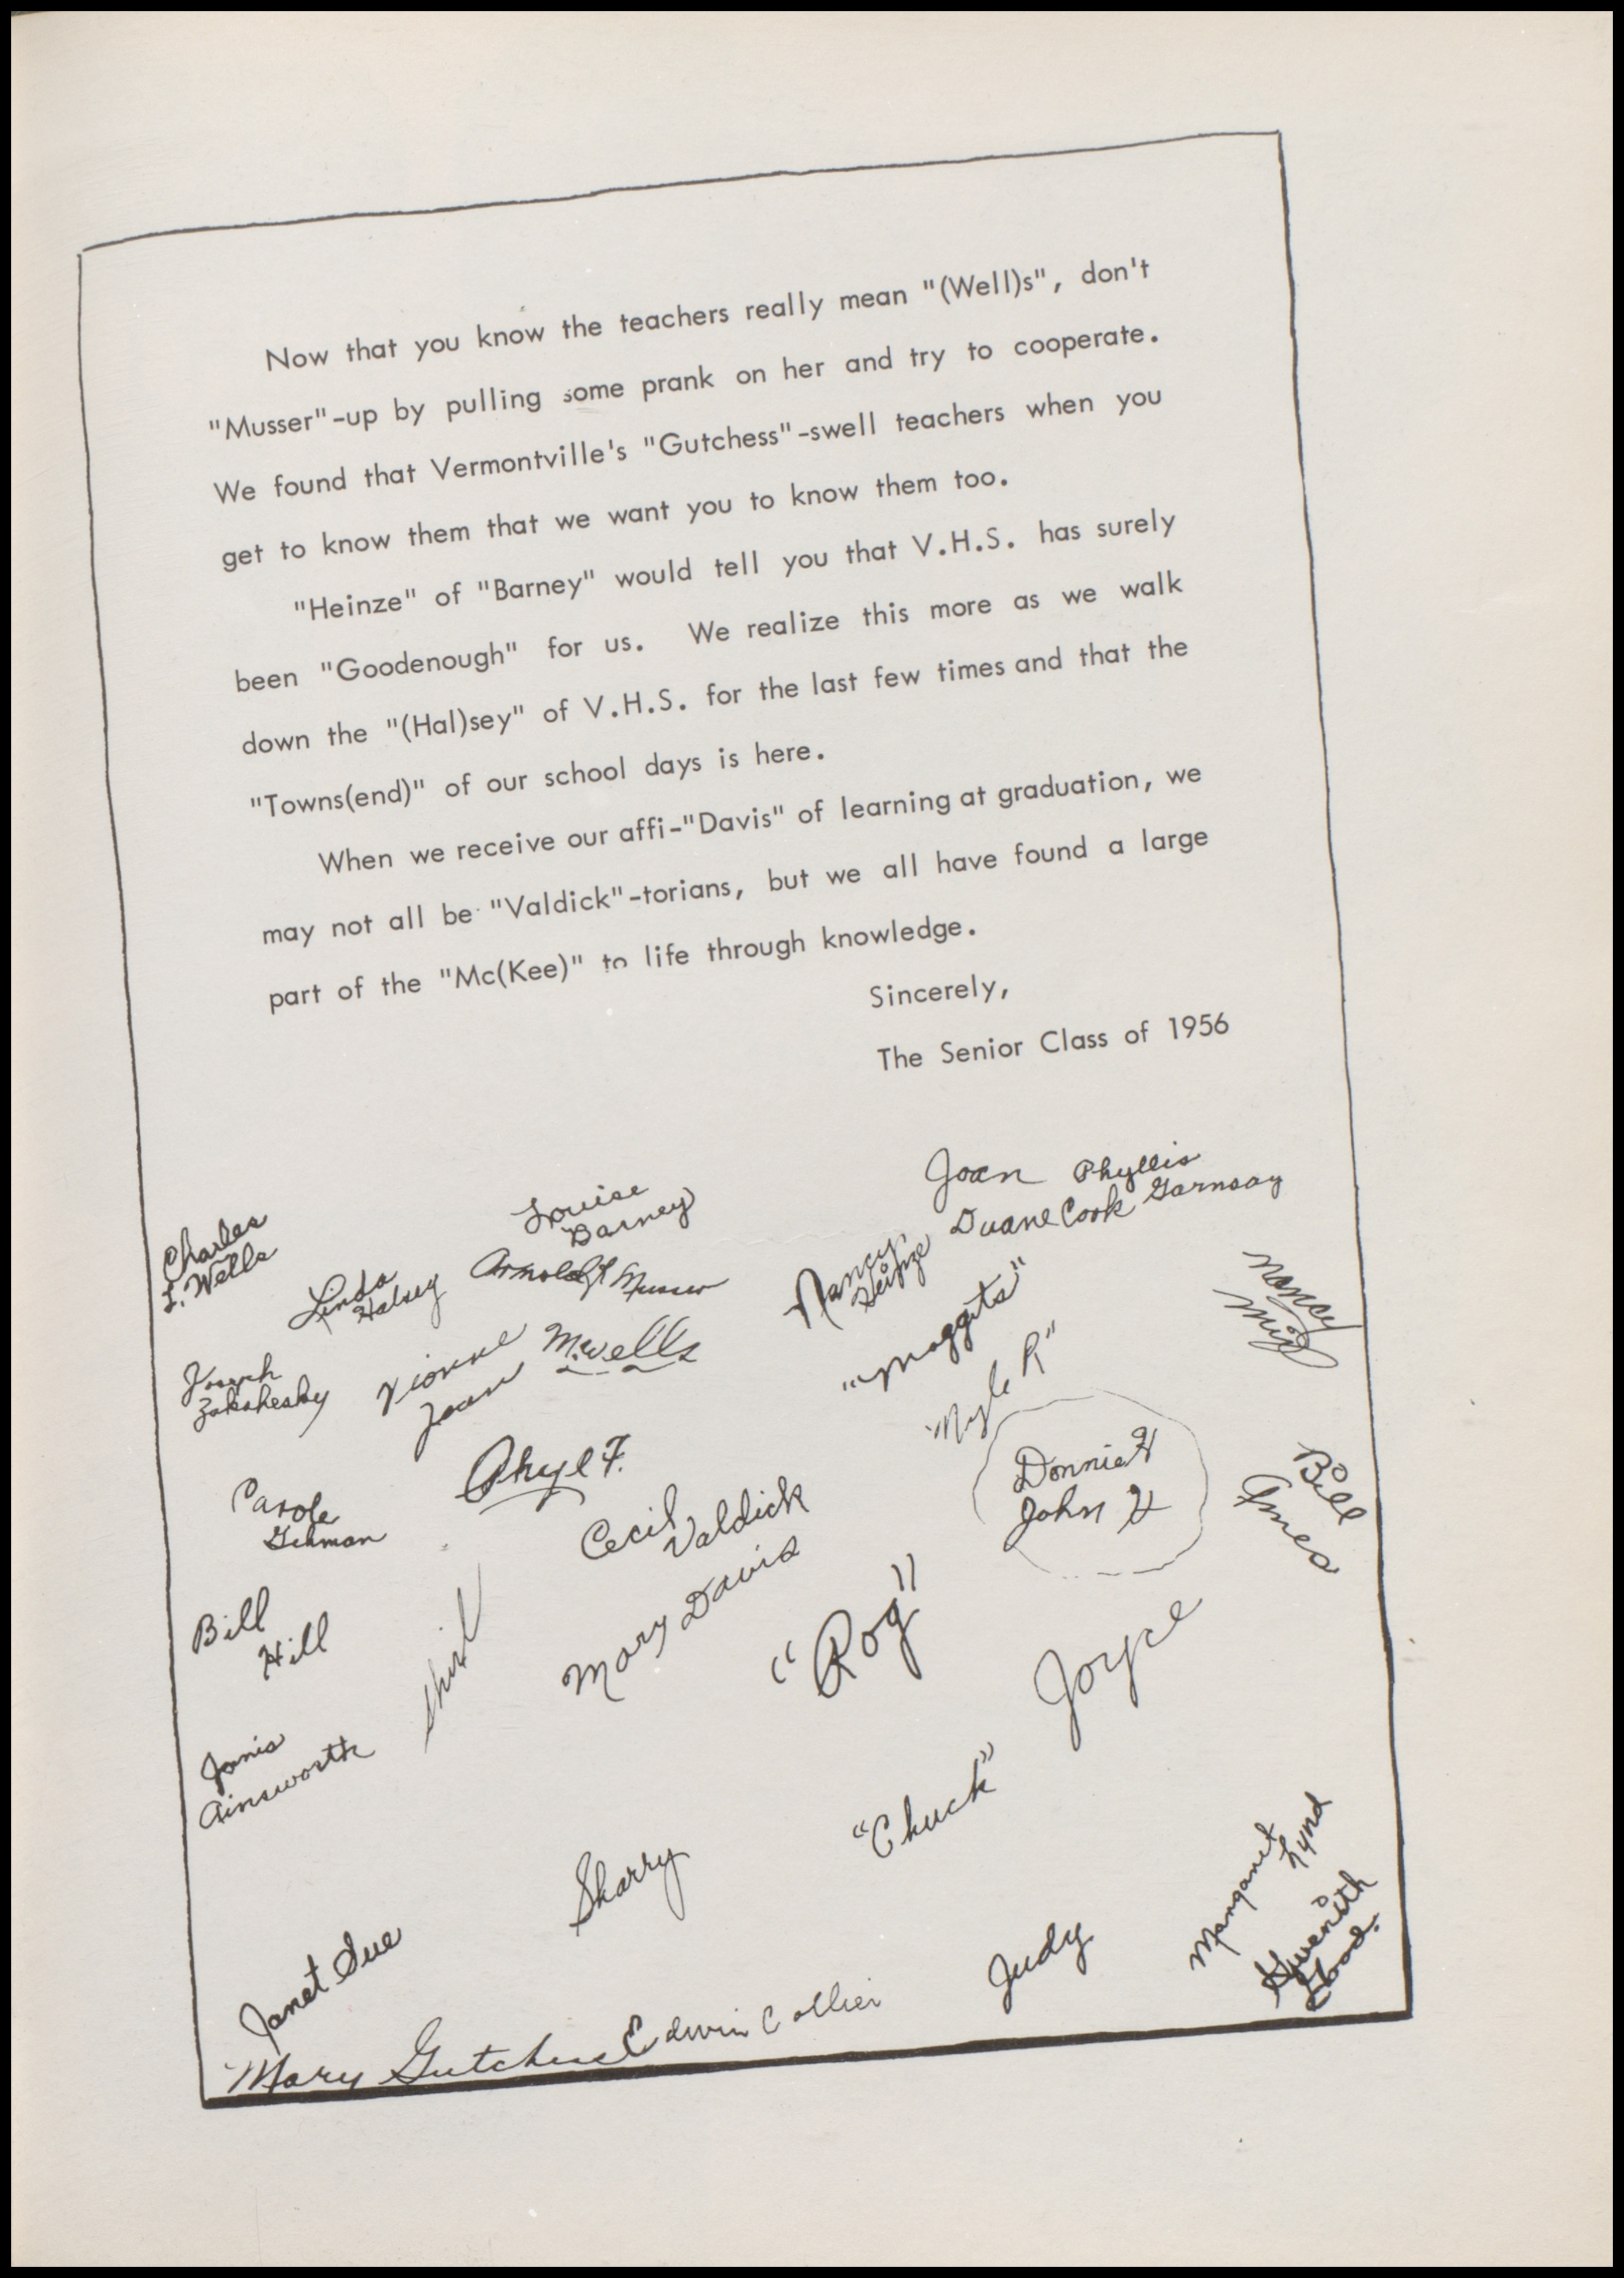 Now that you know the teachers really mean "(Well)s", don't
"Musser"-up by pulling some prank on her and try to cooperate.
We found that Vermontville's "Gutchess"-swell teachers when you
get to know them that we want you to know them too.
"Heinze" of "Barney" would tell you that V.H.S. has surely
been "Goodenough" for us. We realize this more as we walk
down the "(Hal)sey" of V.H.S. for the last few times and that the
"Towns(end)" of our school days is here.
When we receive our affi-"Davis" of learning at graduation, we
may not all be "Valdick"-torians, but we all have found a large
part of the "Mc(Kee)" to life through knowledge.
Sincerely,
The Senior Class of 1956
Joan Phyllis
Garnsay
Duane Cook
Louise
Barney
Charles
L. Wells
Linda
Halsey
Arnold Musser
Nancy
Heinze
"Maggits"
Nancy
Joseph
Joan
M. Wells
"Nyle R"
Donnie H
John H
Bill
Ames
Phyl F.
Carole
Gehman
Cecil
Valdick
Mary Davis
Bill
Hill
Shirl
"Rog"
Joyce
Janis
Ainsworth
"Chuck"
Sharry
Margaret
Lynd
Gwenith
Good.
Janet Sue
Judy
Mary Gutchess
Edwin Collier